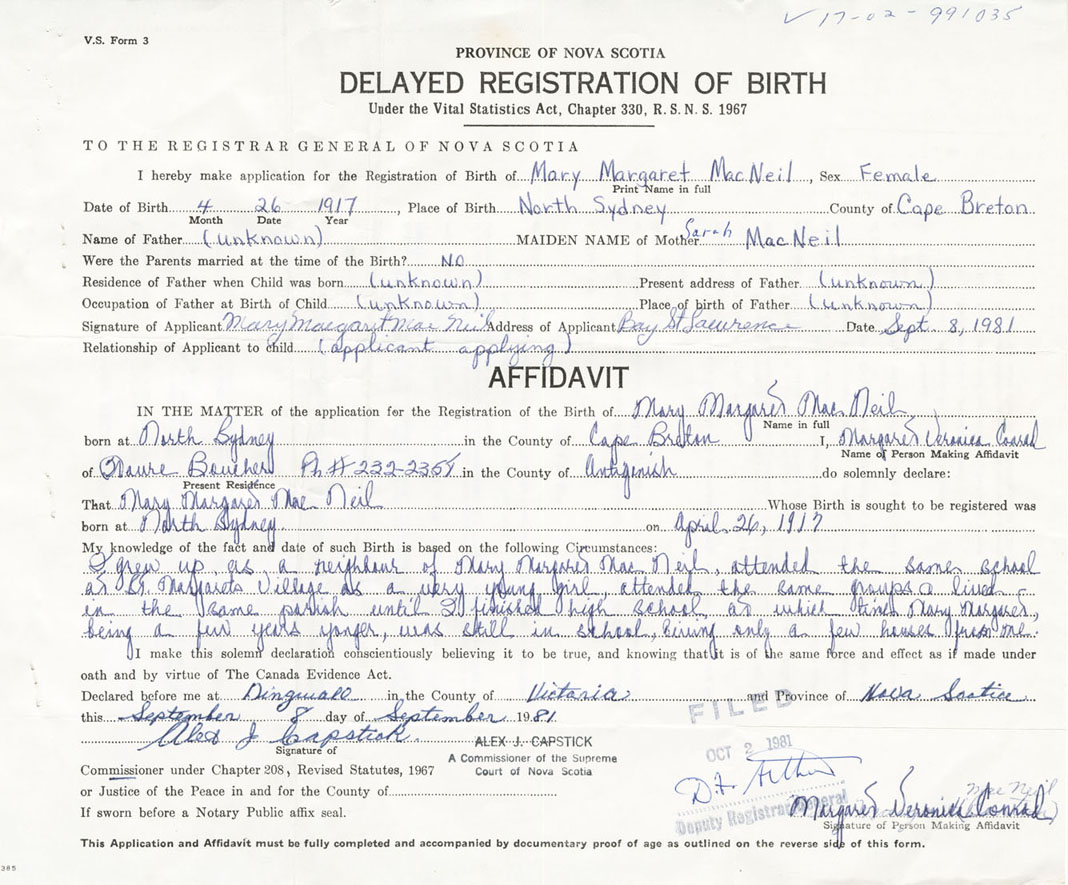 V 17-02-991035
V.S. Form 3
PROVINCE OF NOVA SCOTIA
DELAYED REGISTRATION OF BIRTH
Under the Vital Statistics Act, Chapter 330, R. S. N. S. 1967
TO THE REGISTRAR GENERAL OF NOVA SCOTIA
I hereby make application for the Registration of Birth of Mary Margaret MacNeil, Sex Female
Print Name in full
Date of Birth 4 26 1917, Place of Birth North Sydney County of Cape Breton
Month Date Year
Name of Father (unknown) MAIDEN NAME of Mother Sarah MacNeil
Were the Parents married at the time of the Birth? NO
Residence of Father when Child was born (unknown) Present address of Father (unknown)
Occupation of Father at Birth of Child (unknown) Place of birth of Father (unknown)
Signature of Applicant Mary Margaret Mac Neil Address of Applicant Bay St Lawrence Date Sept. 8, 1981
Relationship of Applicant to Child (applicant applying)
AFFIDAVIT
IN THE MATTER of the application for the Registration of the Birth of Mary Margaret Mac Neil,
Name in full
born at North Sydney in the County of Cape Breton I, Margaret Veronica Conrad
Name of Person Making Affidavit
of Havre Boucher Ph # 232-2351 in the County of Antigonish do solemnly declare:
Present Residence
That Mary Margaret Mac Neil Whose Birth is sought to be registered was
born at North Sydney. on April 26, 1917
My knowledge of the fact and date of such Birth is based on the following Circumstances:
I grew up as a neighbour of Mary Margaret Mac Neil, attended the same school
at St. Margarets Village as a very young girl, attended the same groups & lived
in the same parish until I finished high school, at which time Mary Margaret,
being a few years yonger, was still in school, living only a few houses from me.
I make this solemn declaration conscientiously believing it to be true, and knowing that it is of the same force and effect as if made under
oath and by virtue of The Canada Evidence Act.
Declared before me at Dingwall in the County of Victoria and Province of Nova Scotia
this September 8 day of September 1981
FILED
Alex J Capstick
Signature of
ALEX J. CAPSTICK
A Commissioner of the Supreme
Court of Nova Scotia
OCT 2 1981
Commissioner under Chapter 208, Revised Statutes, 1967
or Justice of the Peace in and for the County of
Deputy Registrar General
Mac Neil
Margaret Veronica Conrad
Signature of Person Making Affidavit
If sworn before a Notary Public affix seal.
This Application and Affidavit must be fully completed and accompanied by documentary proof of age as outlined on the reverse side of this form.
385